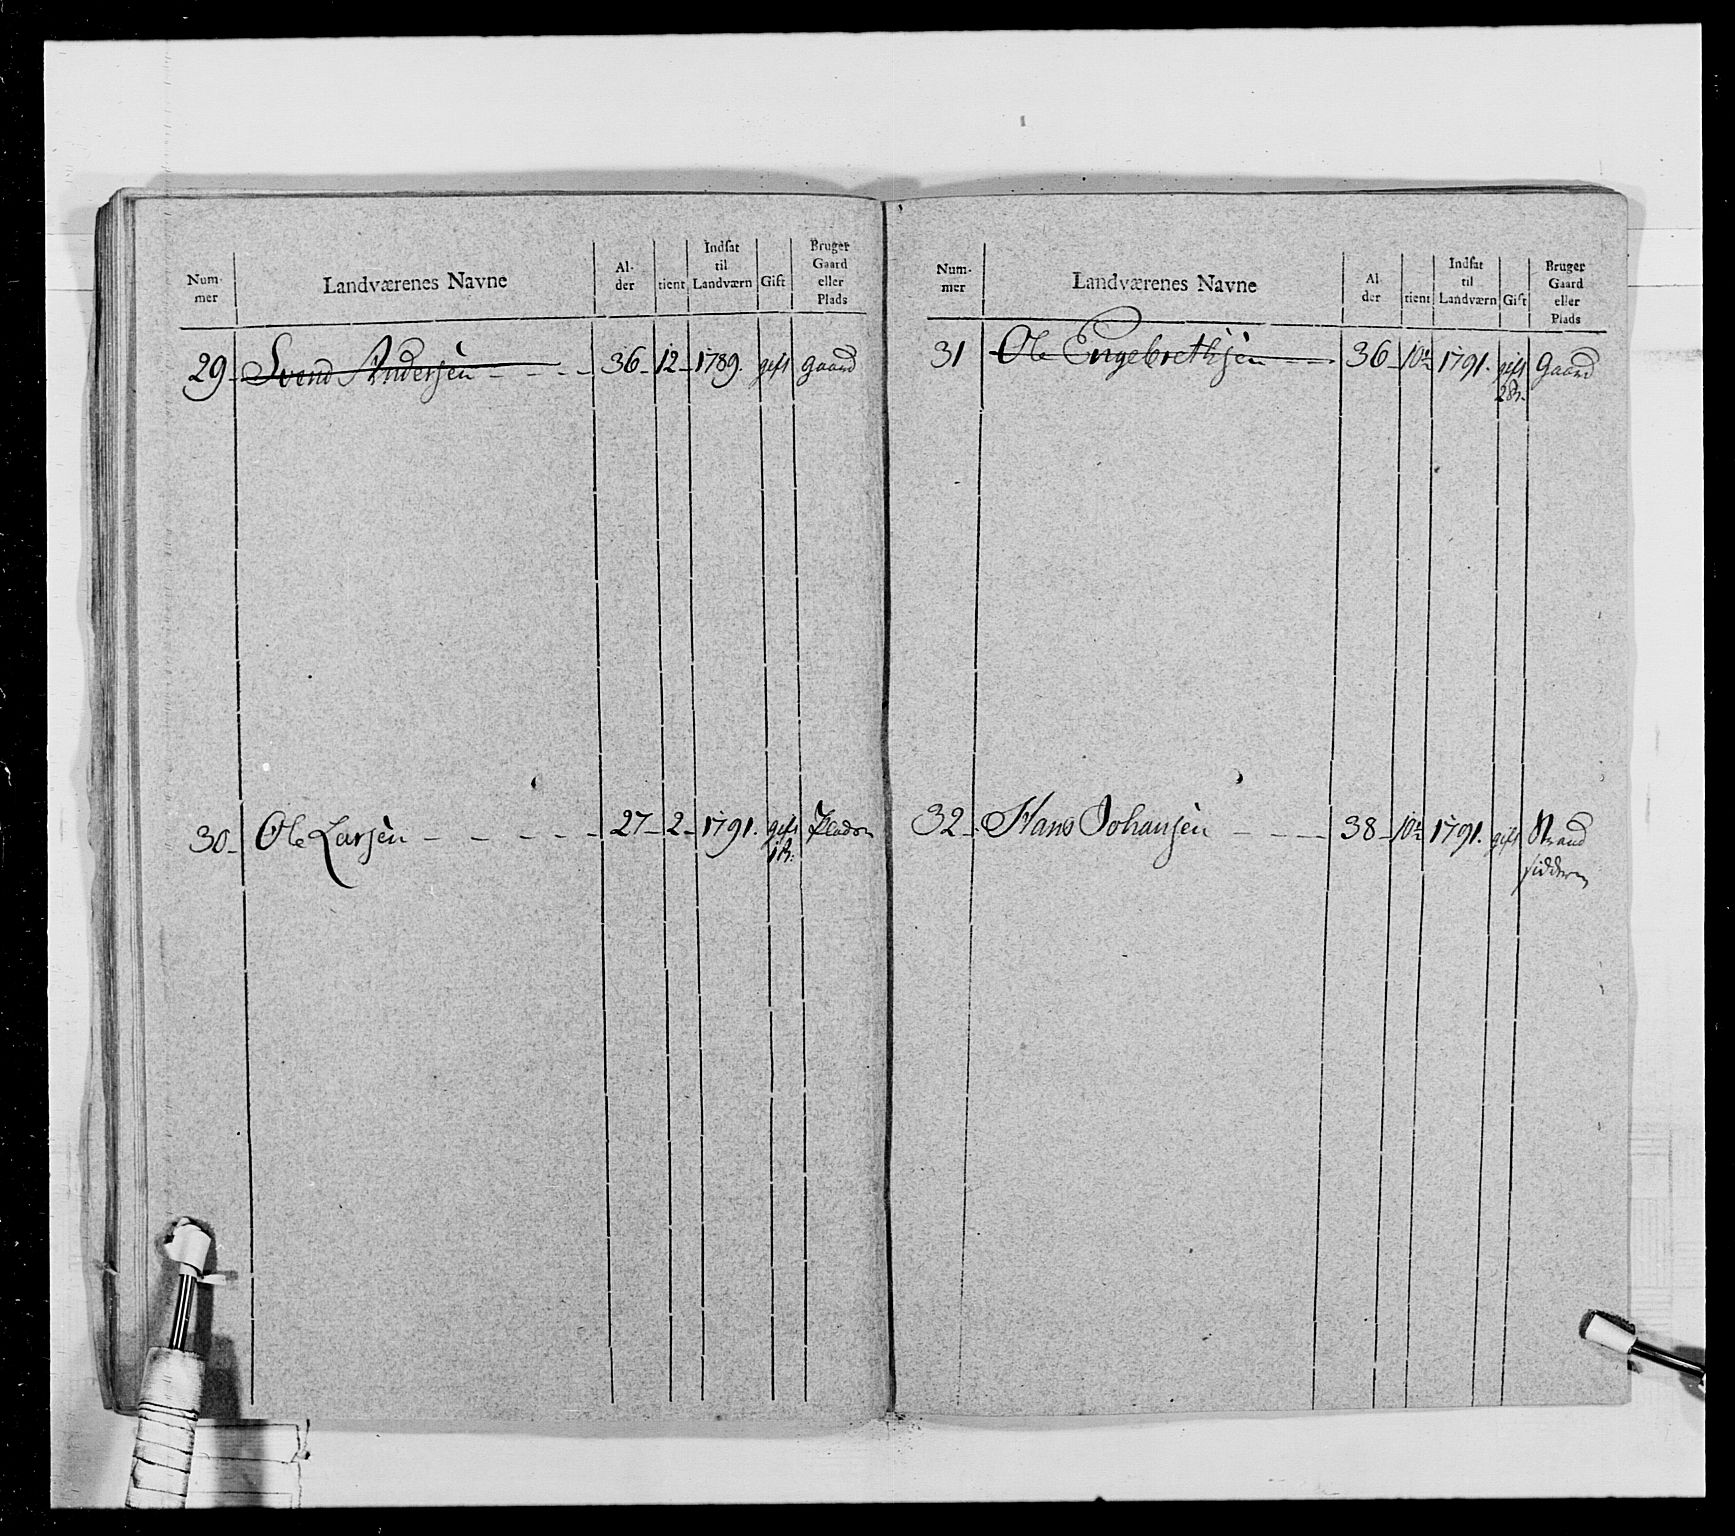 Num-
mer
Landværenes Navne
Al-
der
tient
Indsat
til
Landværn
Gift
Bruger
Gaard
eller
Plads
29 Svend Andersen - - - - 36 - 12 - 1789. gift Gaard
30 - Ole Larsen - - - - - 27 - 2 - 1791. gift Pladsen
1 B.
Num-
mer
Landværenes Navne
Al-
der
tient
Indsat
til
Landværn
Gift
Bruger
Gaard
eller
Plads
31 Ole Engebrethsen - - 36 - 10 1791. gift Gaard
2 B.
32 - Hans Johansen - - - - 38 - 10 1791. gift Strand
sidderen